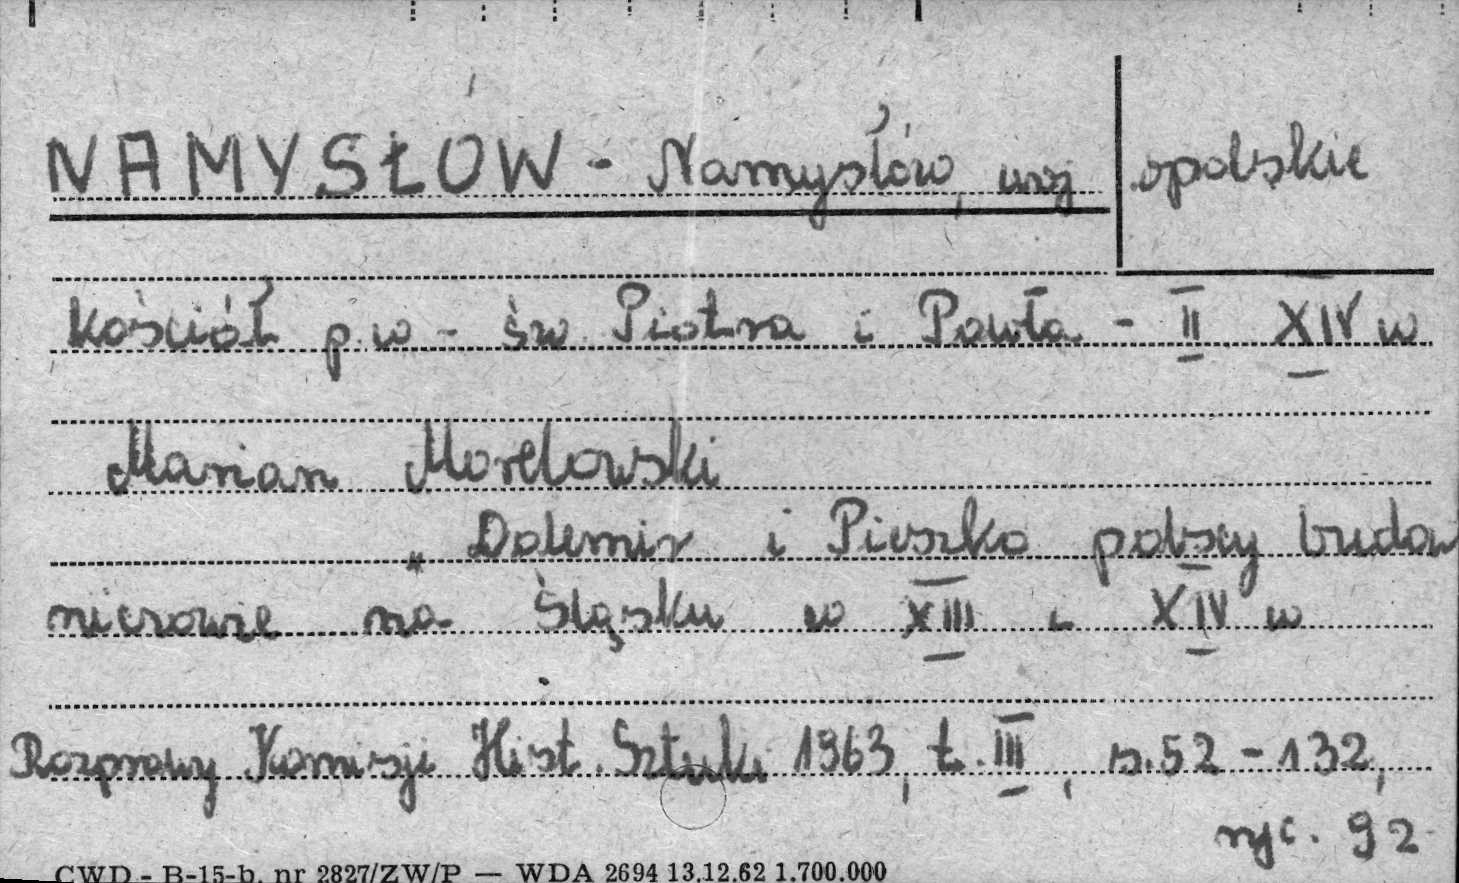 NAMYSŁÓW - Namysłów, woj. opolskie
Kościół p.w - św. Piotra i Pawła - II XIV w
Marian Morelowski
„Dalemir i Pieszko polscy budow
niczowie na Śląsku w XIII i XIV w
Rozprawy Komisji Hist. Sztuki 1963, t. III, s. 52 - 132,
ryc. 92
CWD - B-15-b. nr 2827/ZW/P — WDA 2694 13.12.62 1.700.000